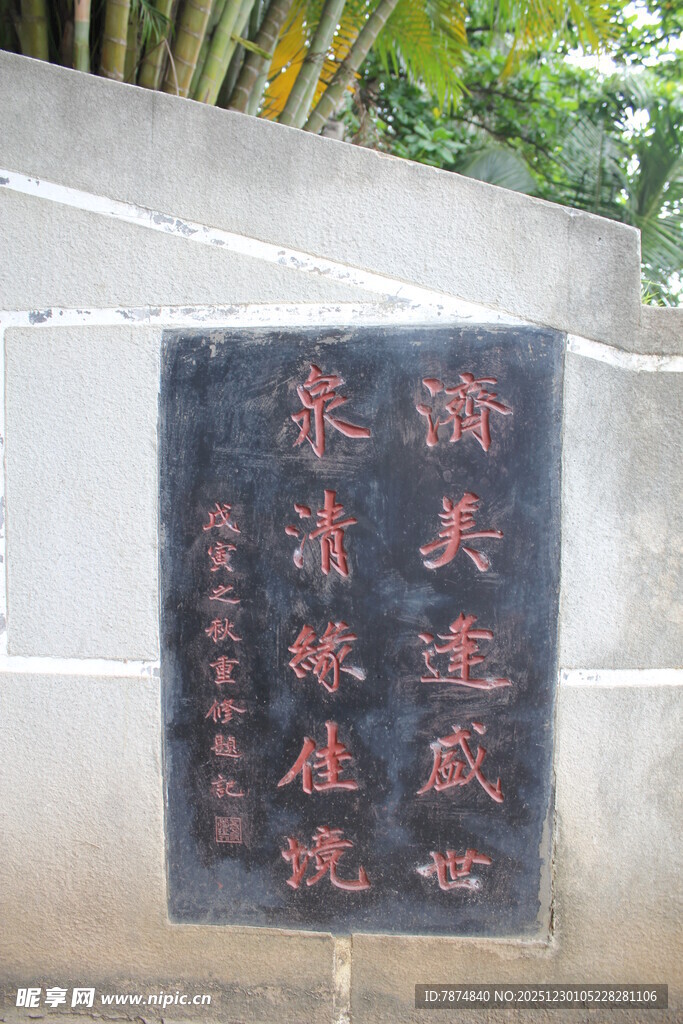 濟美逢盛世
泉清緣佳境
戊寅之秋重修題記
昵享网 www.nipic.cn
ID:7874840 NO:20251230105228281106